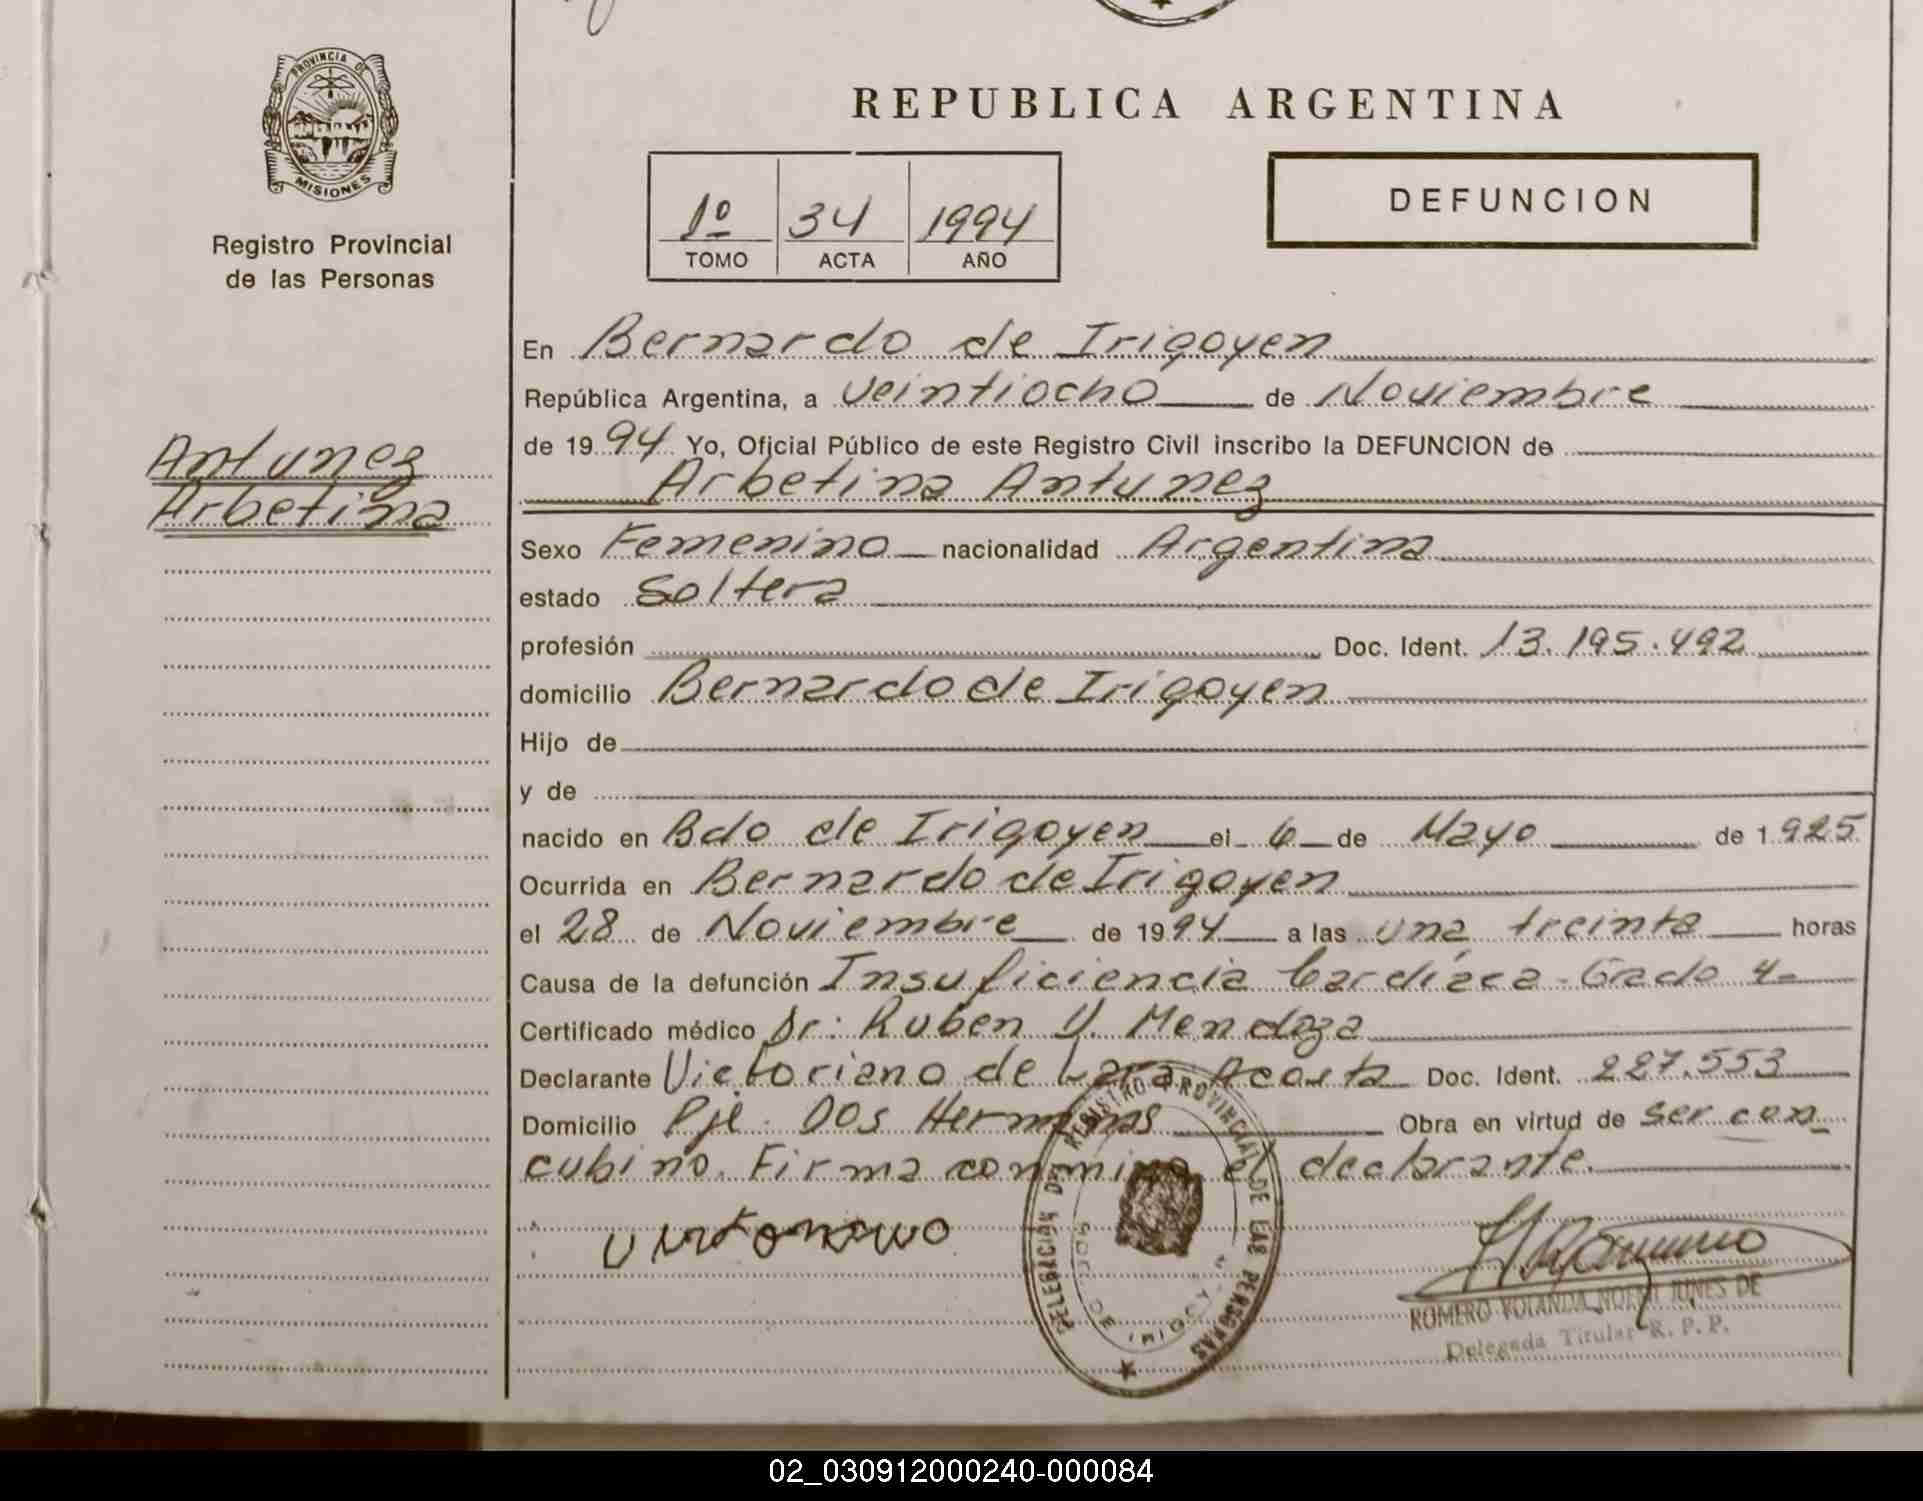 PROVINCIA DE
MISIONES
Registro Provincial
de las Personas
Antunez
Arbetina
REPUBLICA ARGENTINA
1º 34 1994
TOMO ACTA AÑO
DEFUNCION
En Bernardo de Irigoyen
República Argentina, a veintiocho de Noviembre
de 1994 Yo, Oficial Público de este Registro Civil inscribo la DEFUNCION de
Arbetina Antunez
Sexo Femenino nacionalidad Argentina
estado Soltera
profesión Doc. Ident. 13.195.492
domicilio Bernardo de Irigoyen
Hijo de
y de
nacido en Bdo de Irigoyen el 6 de Mayo de 1.925
Ocurrida en Bernardo de Irigoyen
el 28 de Noviembre de 1994 a las una treinta horas
Causa de la defunción Insuficiencia Cardíaca - Grado 4-
Certificado médico Dr: Ruben V. Mendoza
Declarante Victoriano de Lara Acosta Doc. Ident. 227.553
Domicilio Pje. Dos Hermanas Obra en virtud de ser con
cubino. Firma conmigo el declarante.
DELEGACIÓN DEL REGISTRO PROVINCIAL DE LAS PERSONAS
ROMERO YOLANDA NOEMI JUNES DE
Delegada Titular R. P. P.
02_030912000240-000084